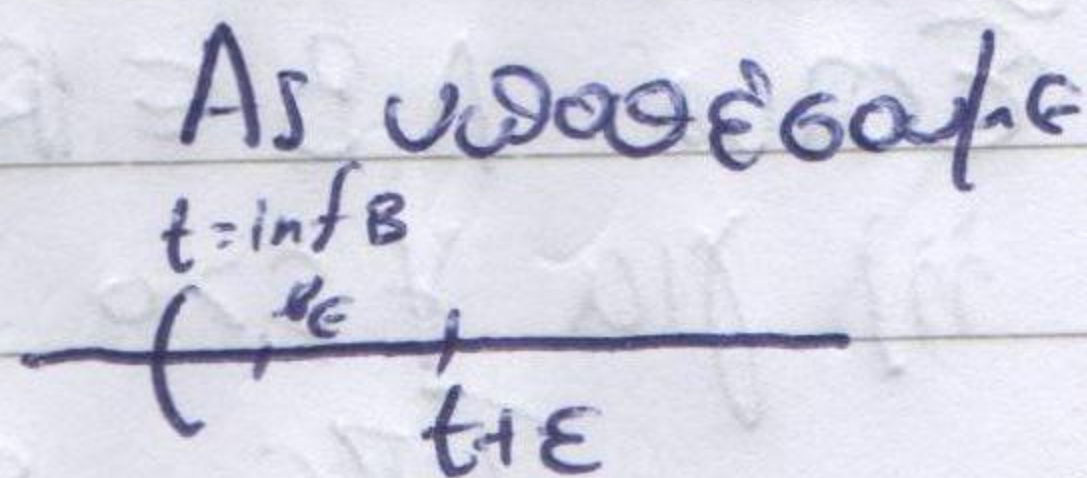 Ας υποθέσουμε
t = inf B
(
b_ε
t+ε